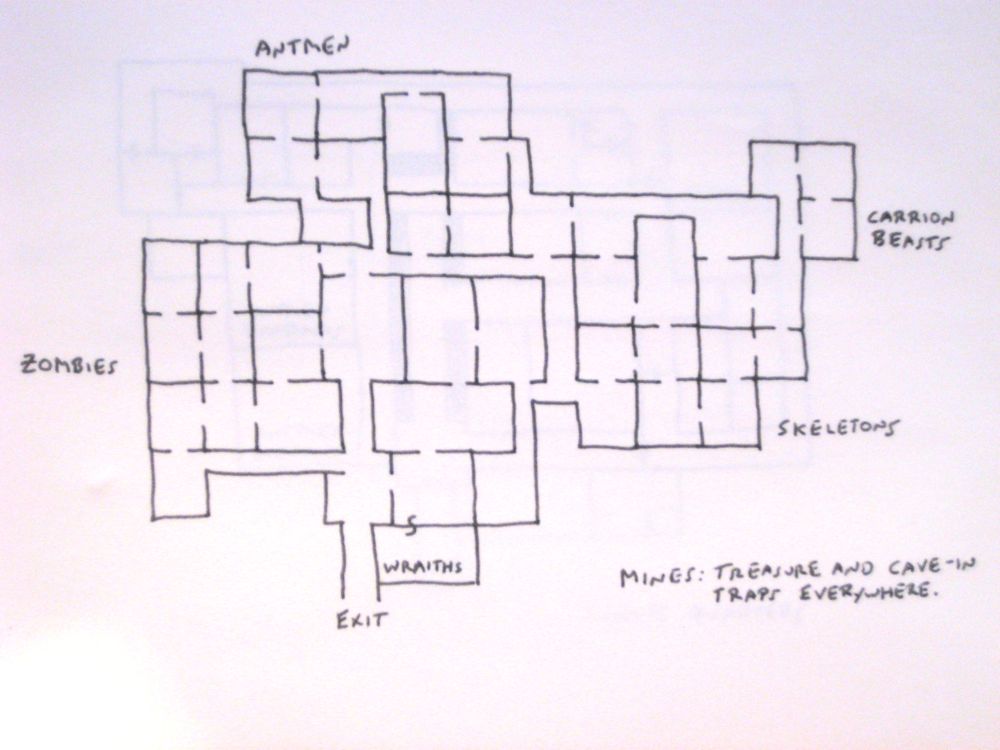 ANTMEN
CARRION
BEASTS
ZOMBIES
SKELETONS
S
WRAITHS
MINES: TREASURE AND CAVE-IN
TRAPS EVERYWHERE.
EXIT